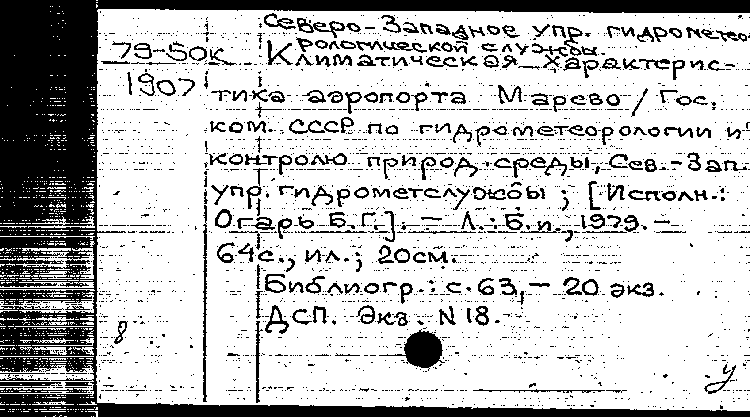 Северо-Западное упр. гидрометео-
рологической службы.
79-50к Климатическая характерис-
1907 тика аэропорта Марево / Гос.
ком. СССР по гидрометеорологии и
контролю природ. среды, Сев.-Зап.
упр. гидрометслужбы ; [Исполн.:
Огарь Б.Г.]. — Л.: Б.и., 1979. —
64с., ил.; 20см.
Библиогр.: с.63, — 20 экз.
ДСП. Экз. N 18.
8
у